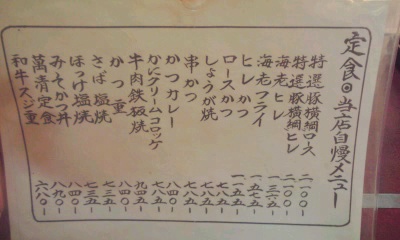 定食◎当店自慢メニュー
特選豚横綱ロース 二一〇〇
特選豚横綱ヒレ 二一〇〇
海老ヒレ 一三六五
海老フライ 一五七五
ヒレかつ
ロースかつ
しょうが焼
串かつ
かつカレー 八四〇
かにクリームコロッケ
牛肉鉄板焼 九四五
かつ重 八四〇
さば塩焼 七三五
ほっけ塩焼 八四〇
みそかつ丼
萬清定食 八九〇
和牛スジ重 六八〇